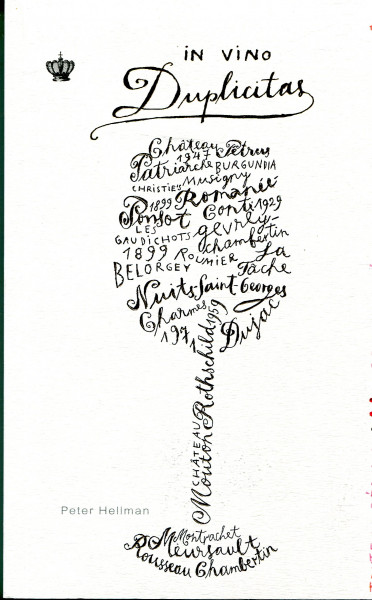 in vino
Duplicitas
Château Pétrus
1947
Patriarche BURGUNDIA
CHRISTIE'S Musigny
1899 Romanée-
Ponsot Conti 1929
LES gevrey-
GAUDICHOTS chambertin
1899 ROUMIER La
BELORGEY Tâche
Nuits-Saint-Georges
Charmes
1971 Dujac
CHÂTEAU
Mouton Rothschild 1959
Peter Hellman
Montrachet
Meursault
Rousseau Chambertin